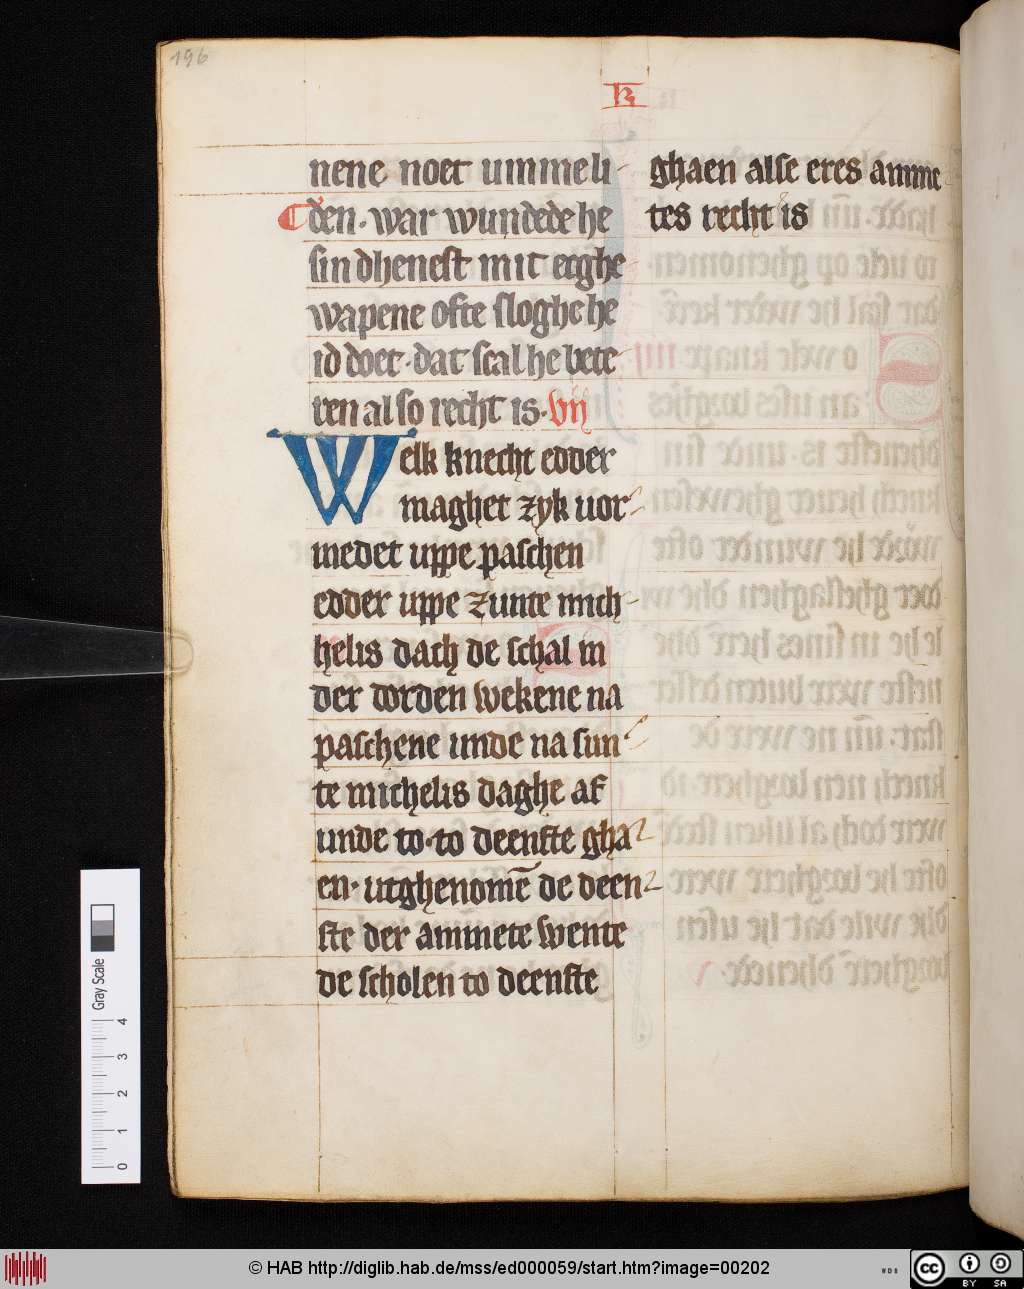 196
k
nene noet ummeli-
den. war wundede he
sin dhenest mit ecghe
wapene ofte sloghe he
id doet. dat scal he bete-
ren also recht is. vij
Welk knecht edder
maghet zyk uor-
medet uppe paschen
edder uppe zunte mich-
helis dach de schal in
der dorden wekene na
paschene unde na sun-
te michelis daghe af
unde to. to deenste gha-
en. utghenomē de deen-
ste der ammete wente
de scholen to deenste
ghaen alse eres amme-
tes recht is
Gray Scale
0 1 2 3 4
© HAB http://diglib.hab.de/mss/ed000059/start.htm?image=00202
WDB
cc BY SA